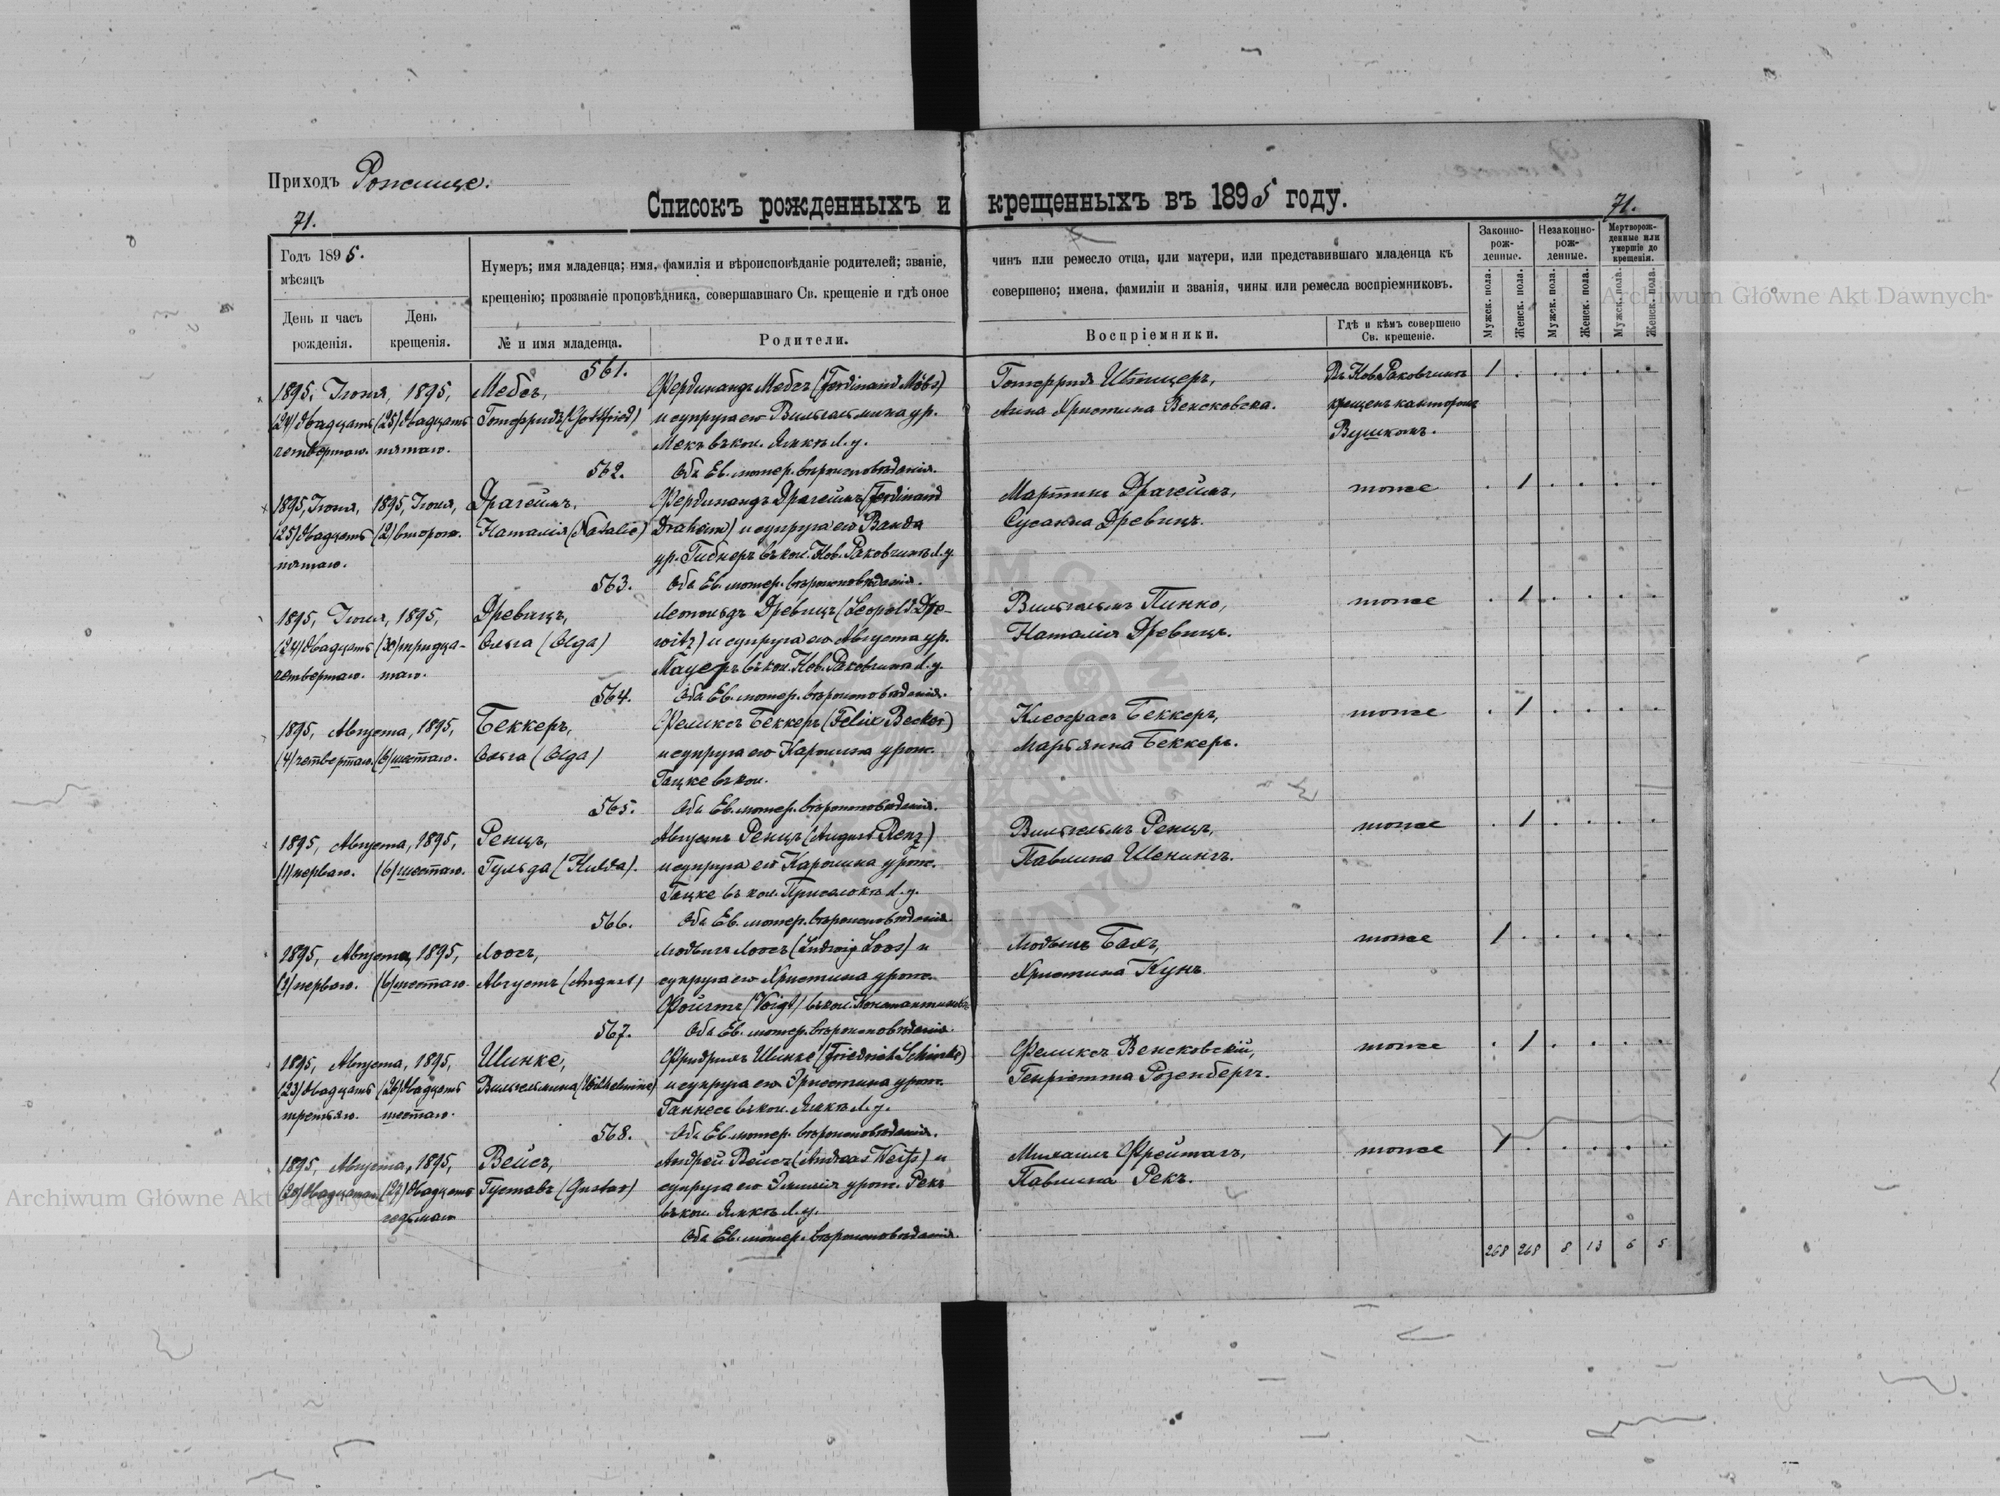 Приходъ Рожище.
Списокъ рожденныхъ и крещенныхъ въ 1895 году.
71.
71.
Годъ 1895.
мѣсяцъ
День и часъ
рожденія.
День
крещенія.
Нумеръ; имя младенца; имя, фамилія и вѣроисповѣданіе родителей; званіе,
чинъ или ремесло отца, или матери, или представившаго младенца къ
крещенію; прозваніе проповѣдника, совершавшаго Св. крещеніе и гдѣ оное
совершено; имена, фамиліи и званія, чины или ремесла воспріемниковъ.
№ и имя младенца.
Родители.
Воспріемники.
Гдѣ и кѣмъ совершено
Св. крещеніе.
Законно-
рож-
денные.
Незаконно-
рож-
денные.
Мертворож-
денные или
умершіе до
крещенія.
Мужск. пола.
Женск. пола.
Мужск. пола.
Женск. пола.
Мужск. пола.
Женск. пола.
561.
1895, Іюня, 1895,
Мебсъ,
Фердинандъ Мебсъ (Ferdinand Möbs)
Готфридъ
Въ Нов. Раковчинѣ
1
(24) двадцать (25) двадцать
Готфридъ (Gottfried)
и супруга его Вильгельмина ур.
Анна Христина Венсковска.
крещенъ канторомъ
четвертаго. пятаго.
Мекъ въ кол. Ямкѣ Л. у.
562.
Оба Ев. лютер. вѣроисповѣданія.
1895, Іюня, 1895, Іюля,
Драгеймъ,
Фердинандъ Драгеймъ (Ferdinand
Мартинъ Драгеймъ,
тоже
1
(25) двадцать (2) второго.
Наталія (Natalie)
Draheim) и супруга его Ванда
Сусанна Древицъ.
пятаго.
ур. Гибнеръ въ кол. Нов. Раковчинѣ Л. у.
563.
Оба Ев. лютер. вѣроисповѣданія.
1895, Іюля, 1895,
Древицъ,
Леопольдъ Древицъ (Leopold Dre-
Вильгельмъ Пинно,
тоже
1
(24) двадцать (30) тридца-
Ольга (Olga)
witz) и супруга его Августа ур.
Наталія Древицъ.
четвертаго. таго.
Мауеръ въ кол. Нов. Раковчинѣ Л. у.
564.
Оба Ев. лютер. вѣроисповѣданія.
1895, Августа, 1895,
Беккеръ,
Феликсъ Беккеръ (Felix Becker)
Клеофасъ Беккеръ,
тоже
1
(4) четвертаго. (6) шестаго.
Ольга (Olga)
и супруга его Каролина урож.
Марьянна Беккеръ.
Гацке въ кол.
565.
Оба Ев. лютер. вѣроисповѣданія.
1895, Августа, 1895,
Ренцъ,
Августъ Ренцъ (August Renz)
Вильгельмъ Ренцъ,
тоже
1
(1) перваго. (6) шестаго.
Гульда (Hulda).
и супруга его Каролина урож.
Павлина Шенингъ.
Гацке въ кол. Присалокѣ Л. у.
566.
Оба Ев. лютер. вѣроисповѣданія.
1895, Августа, 1895,
Лоосъ,
Людвигъ Лоосъ (Ludwig Loos) и
тоже
1
(1) перваго. (6) шестаго.
Августъ (August)
супруга его Христина урож.
Христина Кунъ.
Фойгтъ (Voigt) въ кол.
567.
Оба Ев. лютер. вѣроисповѣданія.
1895, Августа, 1895,
Шинке,
Фридрихъ Шинке (Friedrich Schinke)
Феликсъ Венсковскій,
тоже
1
(23) двадцать (26) двадцать
Вильгельмина (Wilhelmine)
и супруга его Эрнестина урож.
Генріетта Розенбергъ.
третьяго. шестаго.
Ганнесъ въ кол. Ямкѣ Л. у.
568.
Оба Ев. лютер. вѣроисповѣданія.
1895, Августа, 1895,
Вейсъ,
Андрей Вейсъ (Andreas Weiß) и
Михаилъ Фрейтагъ,
тоже
1
(20) двадцатаго. (27) двадцать
Густавъ (Gustav)
супруга его Эмилія урож. Рекъ
Павлина Рекъ.
седьмаго
въ кол. Ямкѣ Л. у.
Оба Ев. лютер. вѣроисповѣданія.
268 268 8 13 6 5
Archiwum Główne Akt Dawnych
Archiwum Główne Akt Dawnych